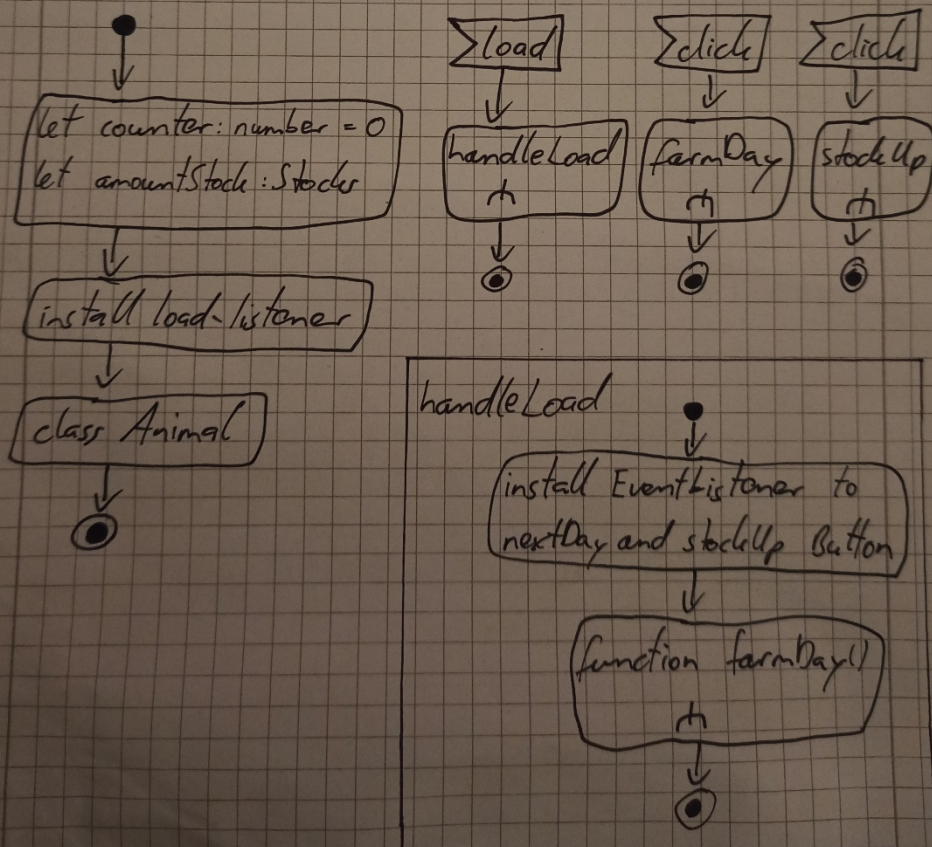 let counter: number = 0
let amountStock: Stocks
install load-listener
class Animal
load
handleLoad
click
farmDay
click
stockUp
handleLoad
install EventListener to
nextDay and stockUp Button
function farmDay()